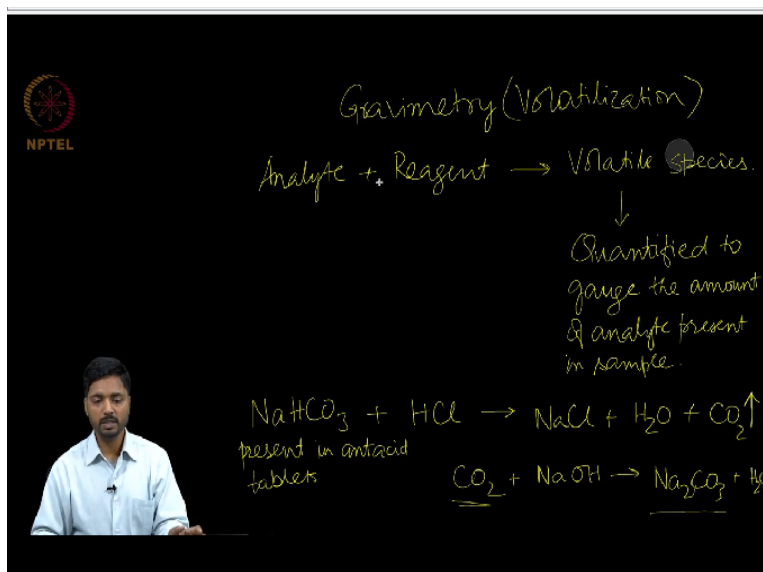 NPTEL
Gravimetry (Volatilization)
Analyte + Reagent → Volatile Species.
↓
Quantified to
gauge the amount
of analyte present
in sample.
NaHCO₃ + HCl → NaCl + H₂O + CO₂↑
present in antacid
tablets
CO₂ + NaOH → Na₂CO₃ + H₂